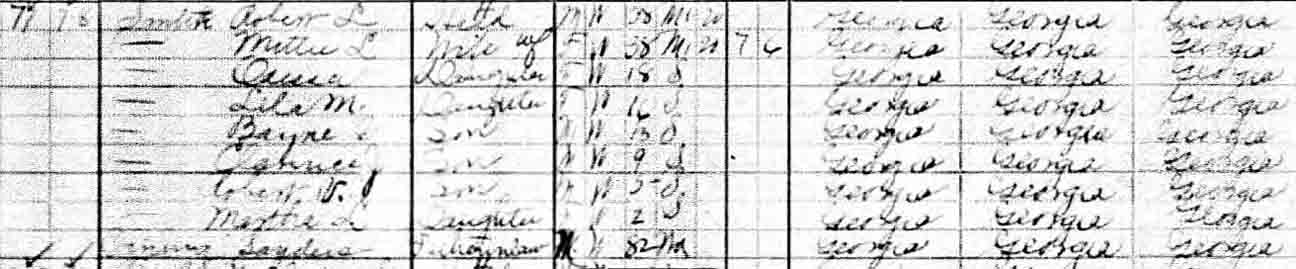 77 78 Smith Robert L Head M W 38 M1 20 Georgia Georgia Georgia
— Mittie L Wife F W 38 M1 20 7 6 Georgia Georgia Georgia
— Daughter F W 18 S Georgia Georgia Georgia
— Lila M. Daughter F W 16 S Georgia Georgia Georgia
— Bayne Son M W 13 S Georgia Georgia Georgia
— Clarence Son M W 9 S Georgia Georgia Georgia
— Robert V. Son M W 5 S Georgia Georgia Georgia
— Martha L Daughter F W 2 S Georgia Georgia Georgia
Sanders Fatherinlaw M W 82 Wd Georgia Georgia Georgia